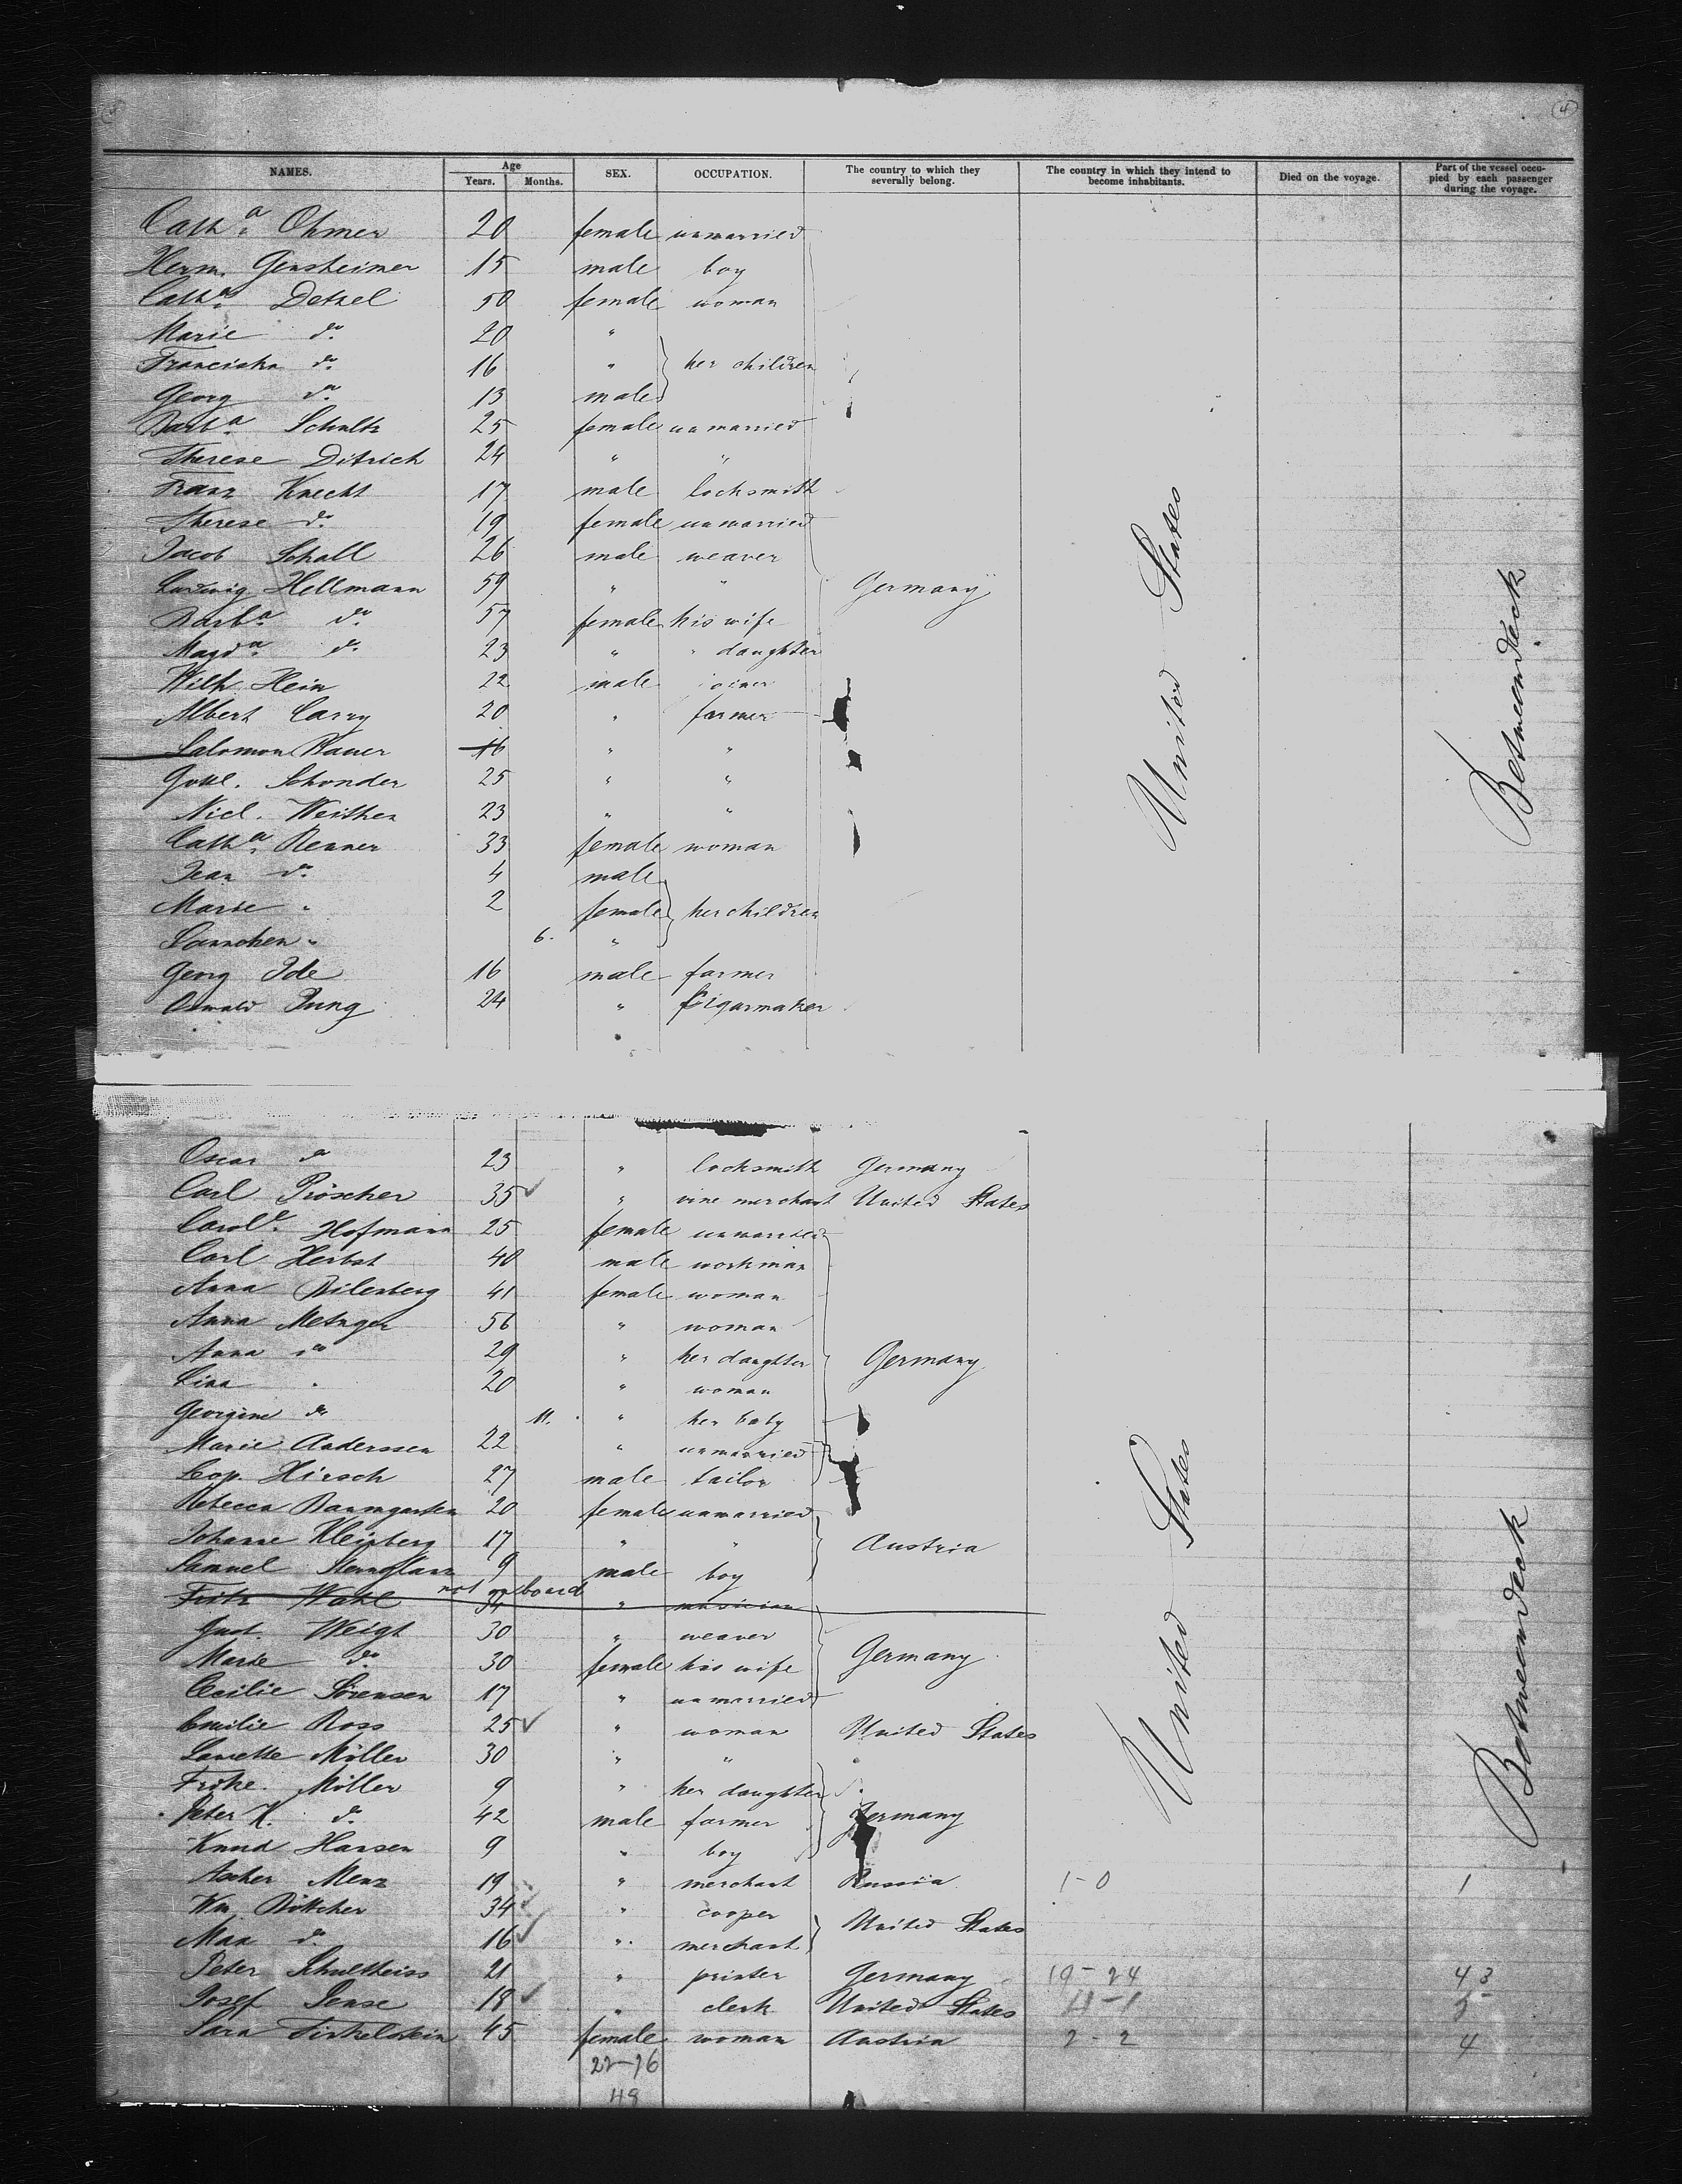 4
4
NAMES. Age Years. Months. SEX. OCCUPATION. The country to which they severally belong. The country in which they intend to become inhabitants. Died on the voyage. Part of the vessel occupied by each passenger during the voyage.
Catha. Ohmer 20 female unmarried
Herm. Gensheimer 15 male boy
Catha. Detzel 50 female woman
Marie do. 20 "
Franciska do. 16 " her children
Georg do. 13 male
Barba. Schultz 25 female unmarried
Therese Ditrich 24 " "
Franz Knecht 17 male locksmith
Therese do. 19 female unmarried
Jacob Schall 26 male weaver
Ludwig Hellmann 59 " " Germany
Barba. do. 57 female his wife
Magda. do. 23 " " daughter
Wilh. Hein 22 male joiner
Albert Carry 20 " farmer
Salomon Bauer 16 " "
Gottl. Schonder 25 " "
Nicl. Weither 23 " "
Catha. Renner 33 female woman
Jean do. 4 male
Marie " 2 female her children
Sannchen " 6. "
Georg Ide 16 male farmer
Oswald Jung 24 " Cigarmaker
United States
Betweendeck
Oscar do 23 " locksmith Germany
Carl Pröscher 35 " vine merchant United States
Carole. Hofmann 25 female unmarried
Carl Herbst 40 male workman
Anna Bilesberg 41 female woman
Anna Metzger 56 " woman
Anna do 29 " her daughter Germany
Lina " 20 " woman
Georgine do 11. " her baby
Marie Anderssen 22 " unmarried
Leop. Hirsch 27 male tailor
Rebecca Baumgarten 20 female unmarried
Johanne Kleinberg 17 " " Austria
Samuel Sternglanz 9 male boy
not on board
Fritz Wahl 34 " musician
Gust. Weigt 30 " weaver
Marie do. 30 female his wife Germany
Cecilie Sörensen 17 " unmarried
Emilie Ross 25 " woman United States
Lanette Möller 30 " "
Fridke. Möller 9 " her daughter
Peter K. do. 42 male farmer Germany
Knud Hansen 9 " boy
Ascher Menz 19 " merchant Russia 1-0 1
Wm. Böttcher 34 " cooper United States
Max do. 16 " merchant
Peter Schultheiss 21 " printer Germany 19-24 43
Josef Jense 18 " clerk United States
Sara Finkelstein 45 female woman Austria 2-2 4
22-26
48
United States
Betweendeck